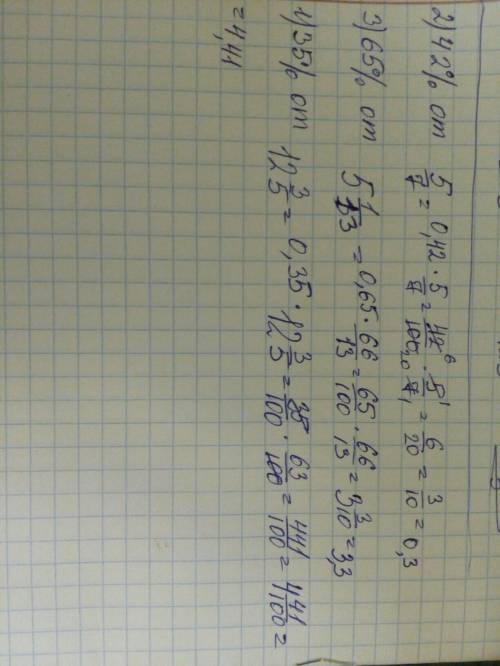 2) 42% от 5/7 = 0,42 · 5/7 = 42⁶/100₂₀ · 5¹/7₁ = 6/20 = 3/10 = 0,3
3) 65% от 5 1/13 = 0,65 · 66/13 = 65/100 · 66/13 = 3 3/10 = 3,3
4) 35% от 12 3/5 = 0,35 · 12 3/5 = 35/100 · 63/100 = 441/100 = 4 41/100 =
= 4,41